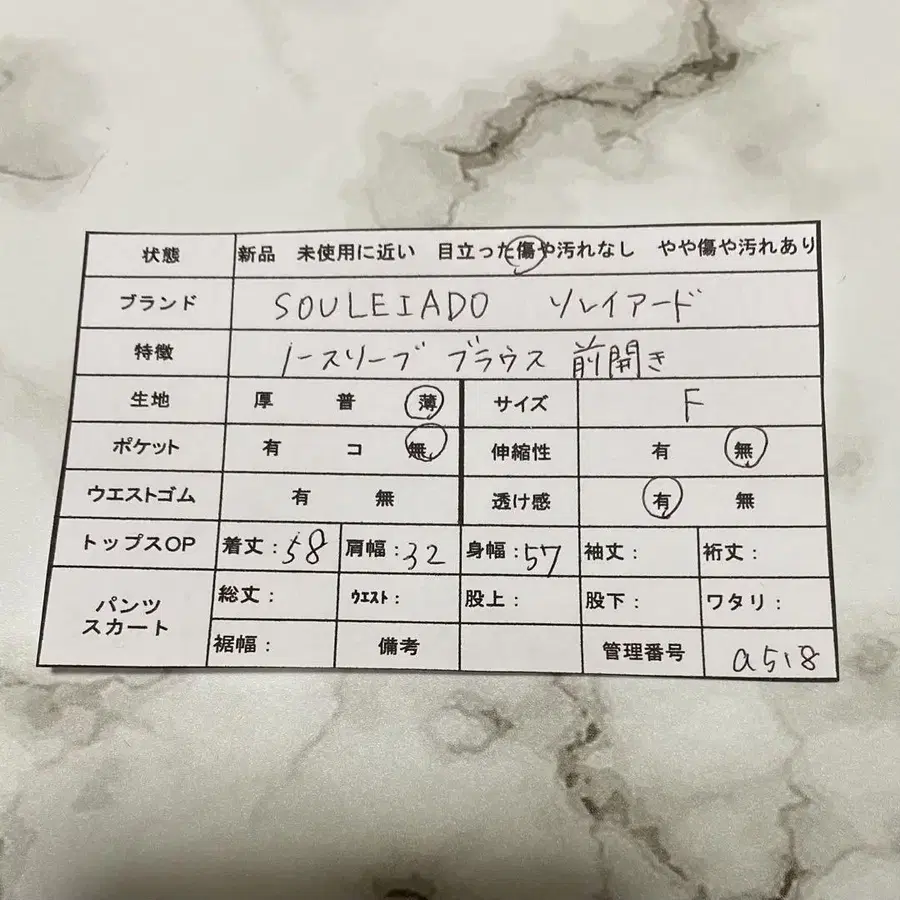 状態 新品 未使用に近い 目立った傷や汚れなし やや傷や汚れあり
ブランド SOULEIADO ソレイアード
特徴 ノースリーブ ブラウス 前開き
生地 厚 普 薄 サイズ F
ポケット 有 コ 無 伸縮性 有 無
ウエストゴム 有 無 透け感 有 無
トップスOP 着丈:58 肩幅:32 身幅:57 袖丈: 裄丈:
パンツ スカート 総丈: ウエスト: 股上: 股下: ワタリ:
裾幅: 備考 管理番号 a518